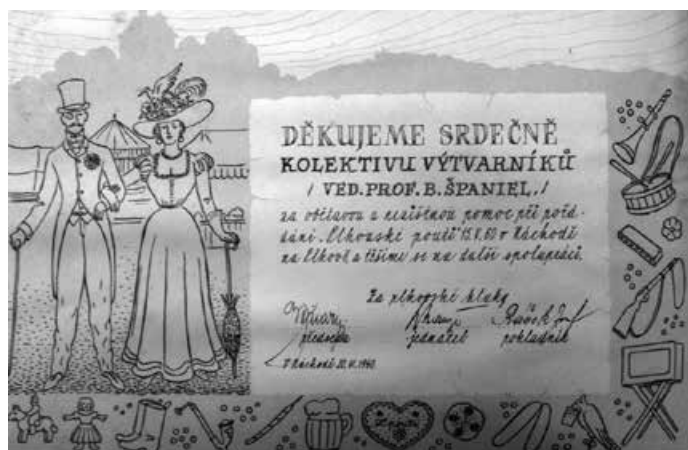 DĚKUJEME SRDEČNĚ
KOLEKTIVU VÝTVARNÍKŮ
/ VED. PROF. B. ŠPANIEL. /
za obětavou a nezištnou pomoc při pořá-
dání „Plhovské pouti" 15.V.60 v Náchodě
na Plhově a těšíme se na další spolupráci.
Za plhovské kluky
předseda jednatel pokladník
V Náchodě 1960